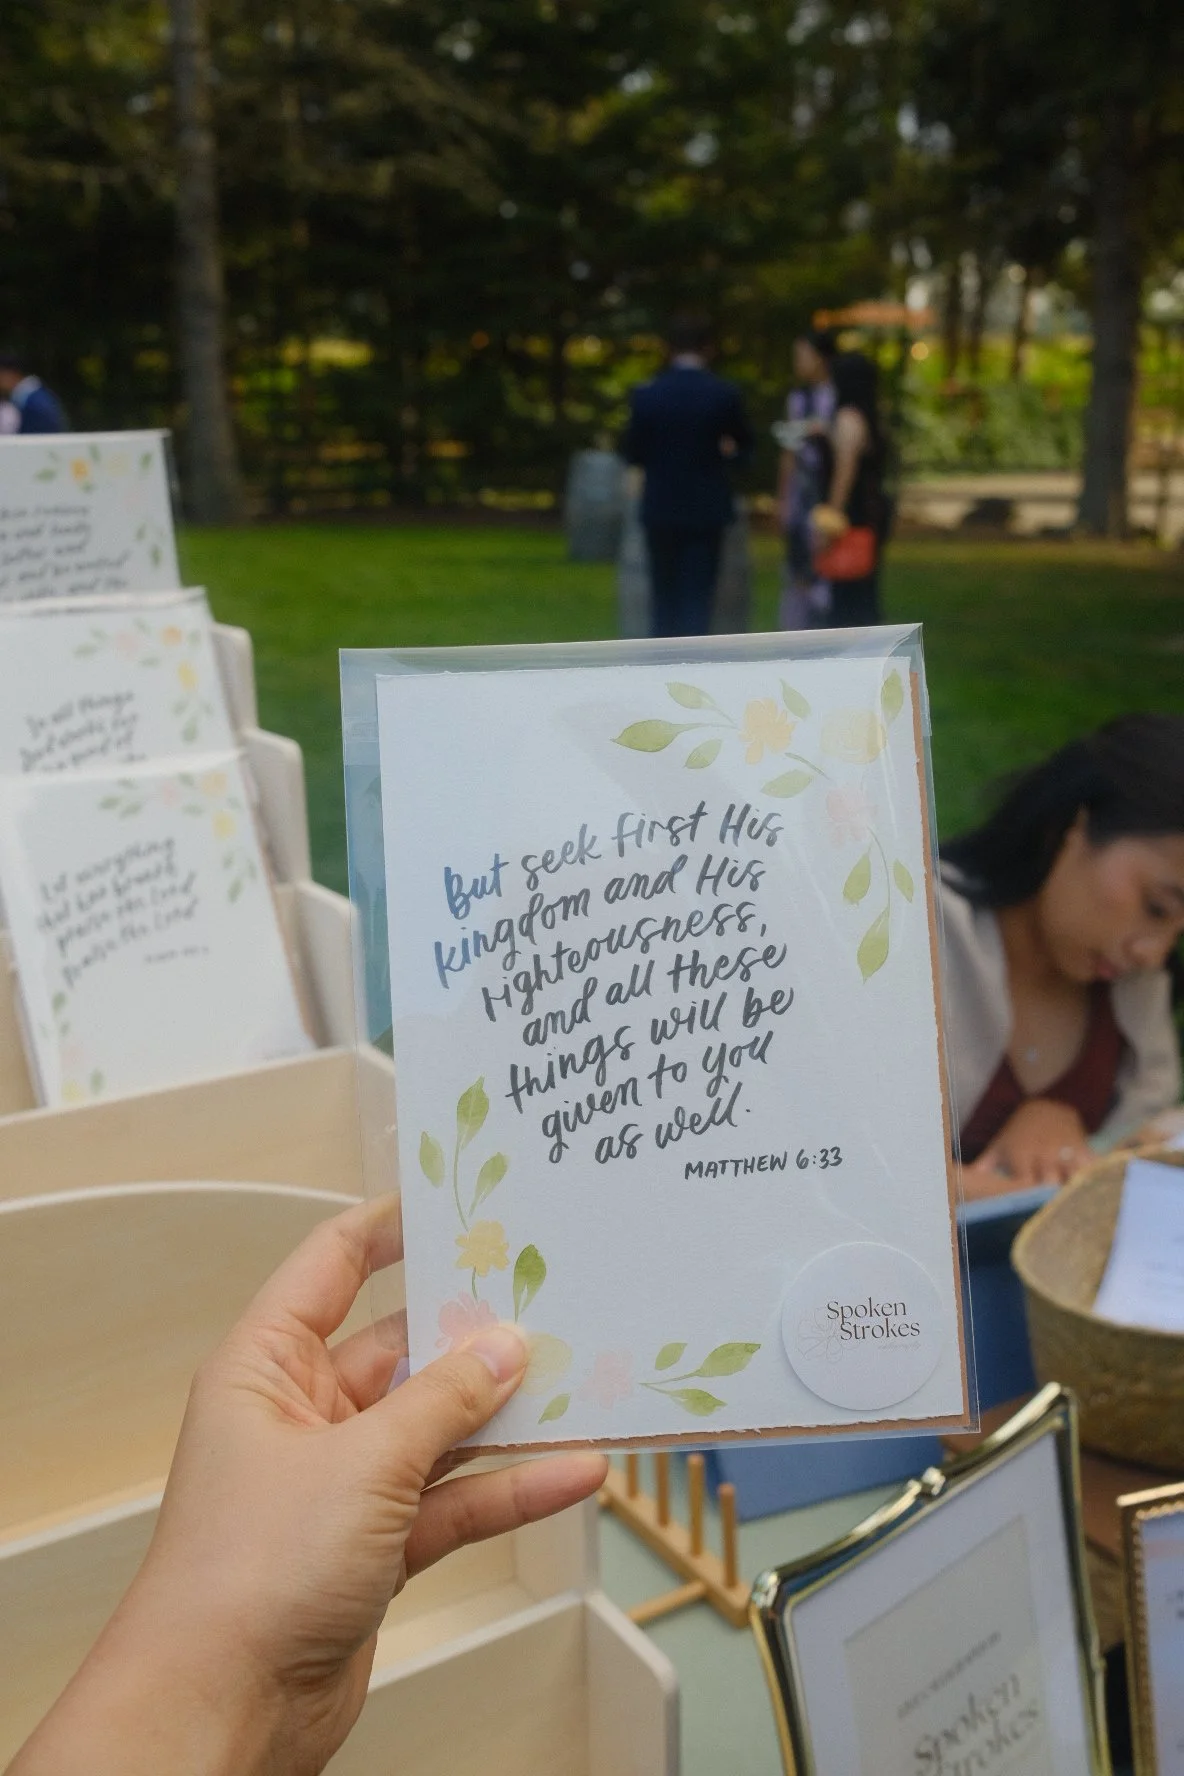 But seek first His
kingdom and His
righteousness,
and all these
things will be
given to you
as well.
MATTHEW 6:33
Spoken
Strokes
In all things
God works for
the good of
Let everything
that has breath
praise the Lord
Praise the Lord
Spoken
Strokes